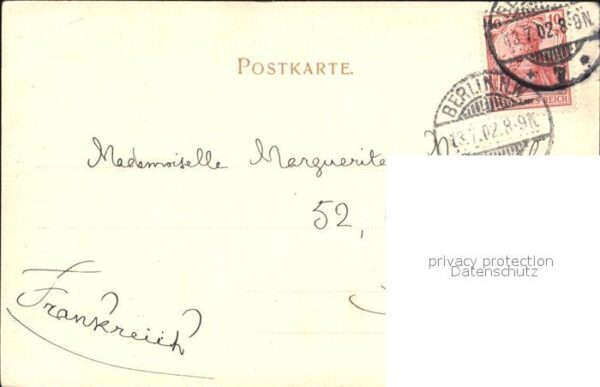 13.7.02.8-9N
POSTKARTE.
BERLIN N.W.
13.7.02.8-9N
Mademoiselle Marguerite
52,
privacy protection
Datenschutz
Frankreich